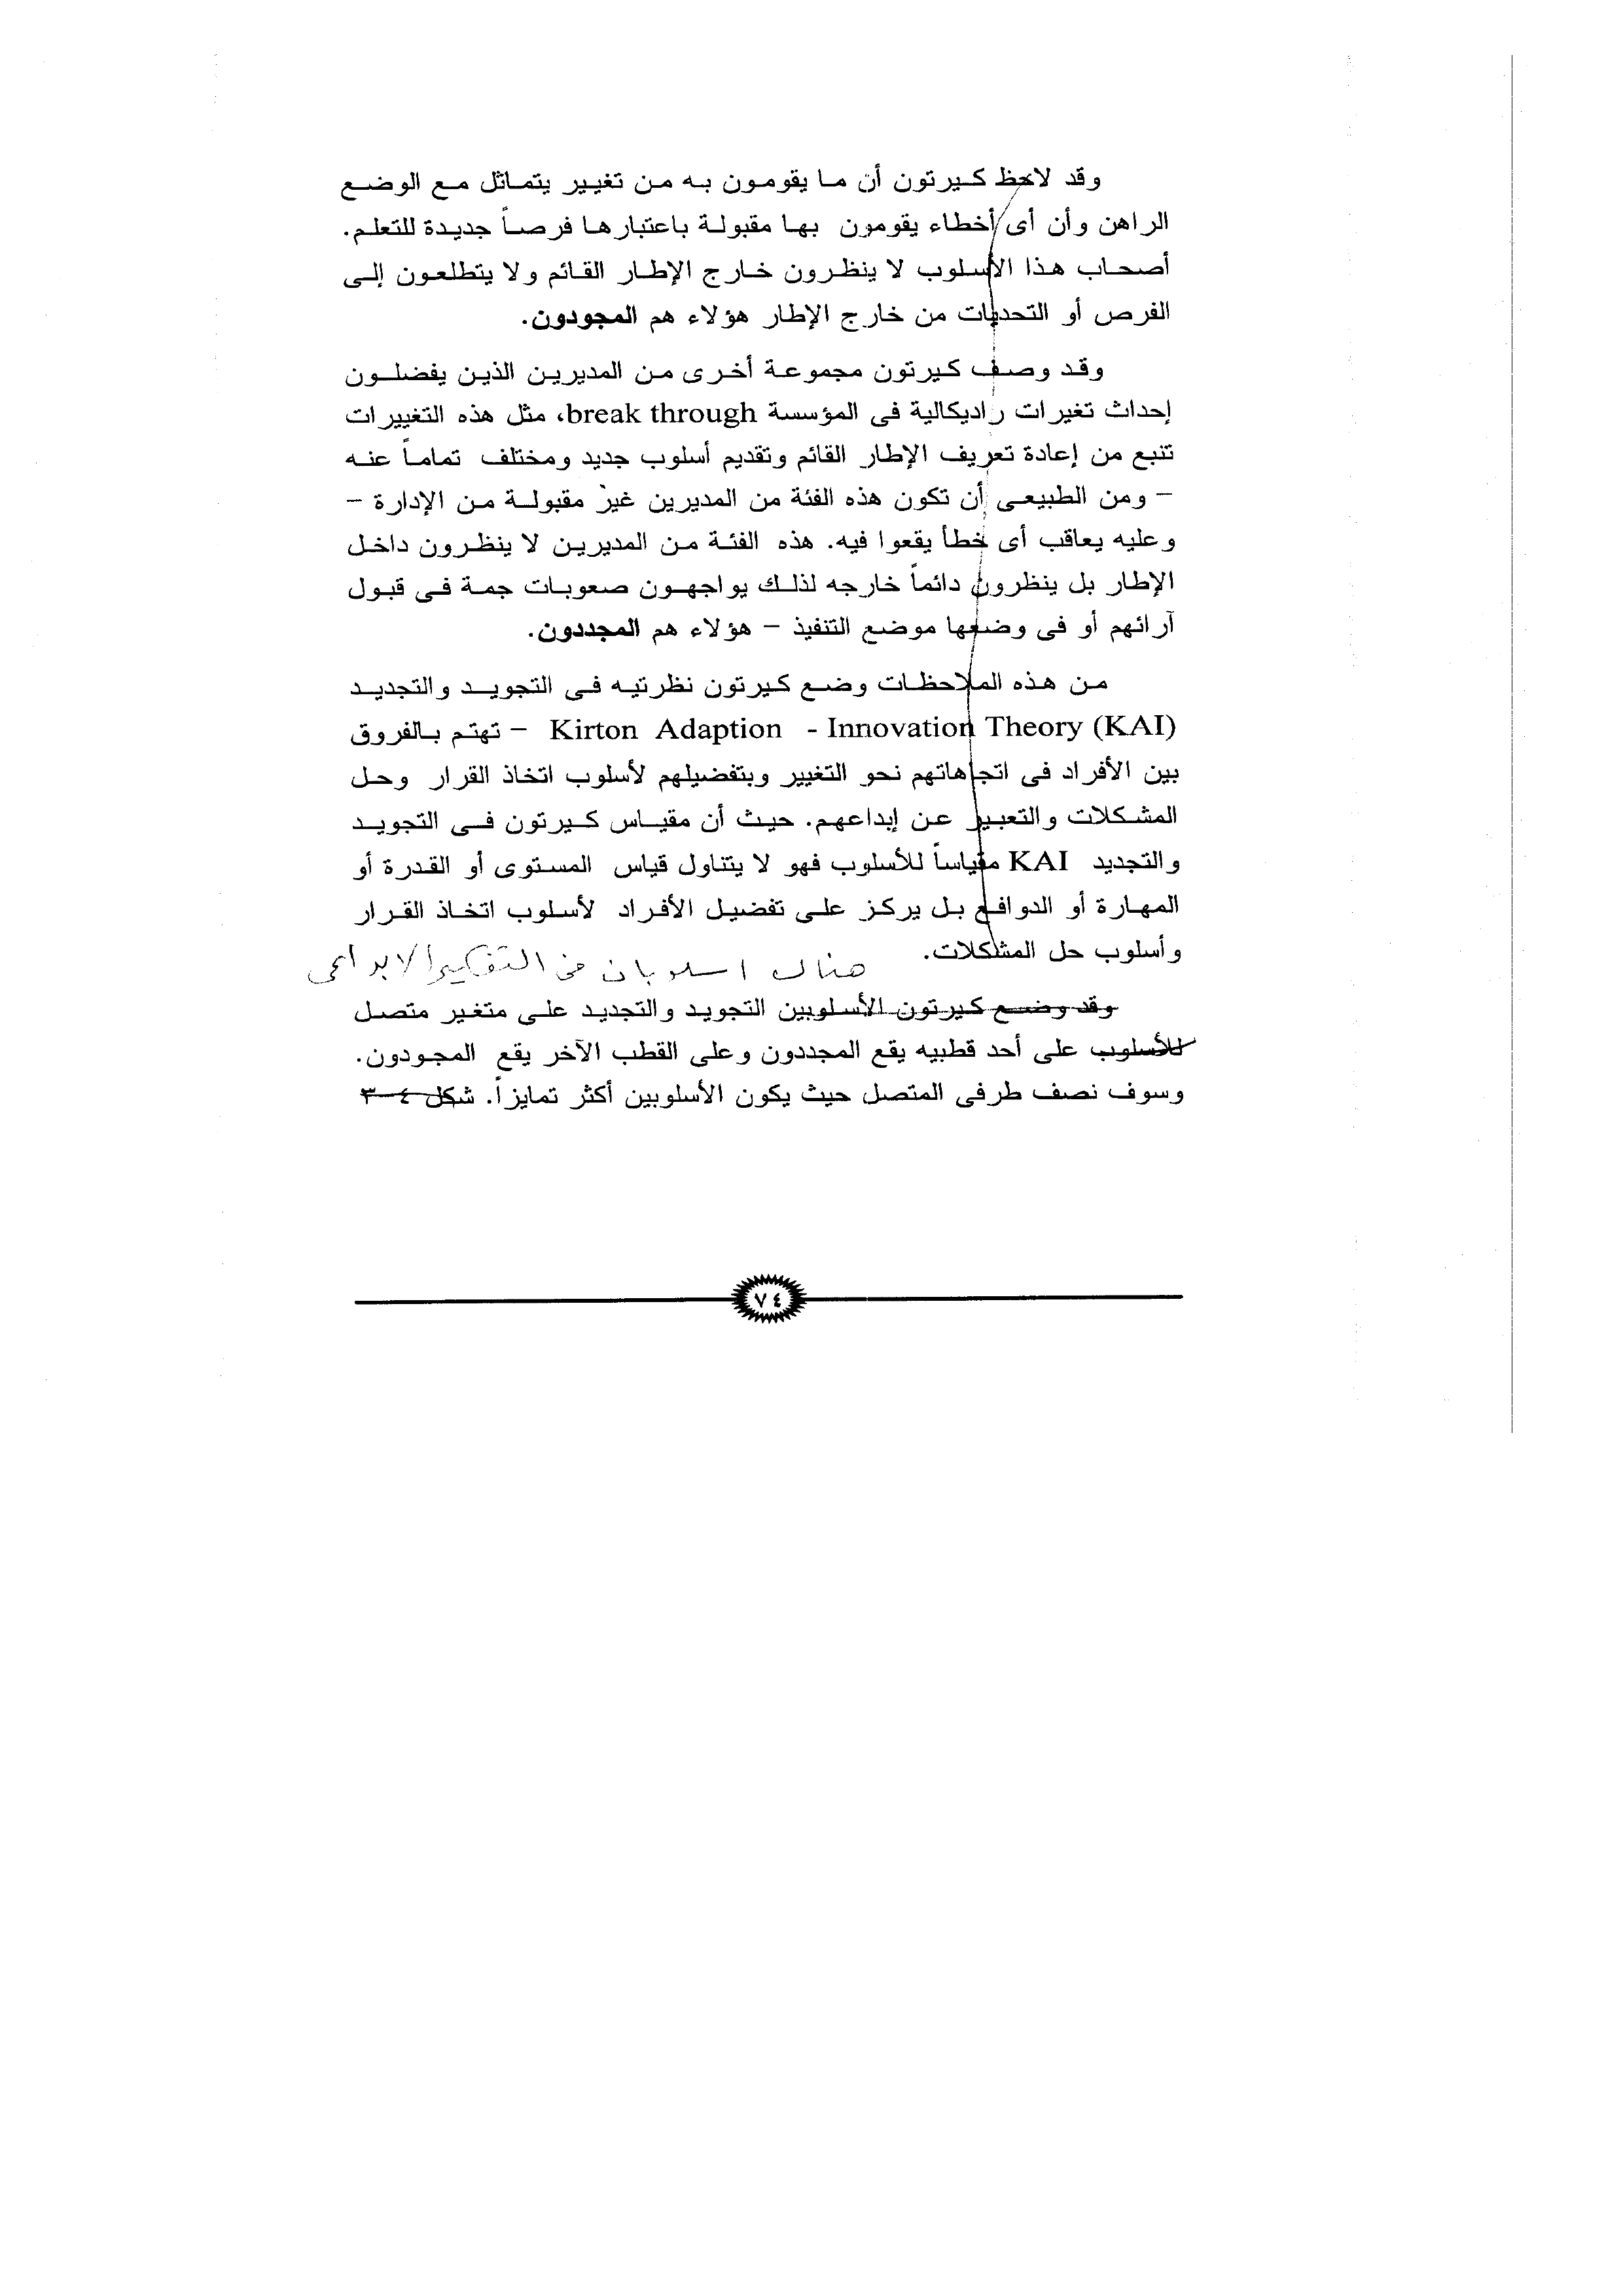 وقد لاحظ كيرتون أن ما يقومون به من تغيير يتماثل مع الوضع
الراهن وأن أى أخطاء يقومون بها مقبولة باعتبارها فرصاً جديدة للتعلم.
أصحاب هذا الأسلوب لا ينظرون خارج الإطار القائم ولا يتطلعون إلى
الفرص أو التحديات من خارج الإطار هؤلاء هم المجودون.
وقد وصف كيرتون مجموعة أخرى من المديرين الذين يفضلون
إحداث تغيرات راديكالية فى المؤسسة break through، مثل هذه التغييرات
تنبع من إعادة تعريف الإطار القائم وتقديم أسلوب جديد ومختلف تماماً عنه
– ومن الطبيعى أن تكون هذه الفئة من المديرين غير مقبولة من الإدارة –
وعليه يعاقب أى خطأ يقعوا فيه. هذه الفئة من المديرين لا ينظرون داخل
الإطار بل ينظرون دائماً خارجه لذلك يواجهون صعوبات جمة فى قبول
آرائهم أو فى وضعها موضع التنفيذ – هؤلاء هم المجددون.
من هذه الملاحظات وضع كيرتون نظرتيه فى التجويد والتجديد
Kirton Adaption - Innovation Theory (KAI) – تهتم بالفروق
بين الأفراد فى اتجاهاتهم نحو التغيير وبتفضيلهم لأسلوب اتخاذ القرار وحل
المشكلات والتعبير عن إبداعهم. حيث أن مقياس كيرتون فى التجويد
والتجديد KAI مقياساً للأسلوب فهو لا يتناول قياس المستوى أو القدرة أو
المهارة أو الدوافع بل يركز على تفضيل الأفراد لأسلوب اتخاذ القرار
وأسلوب حل المشكلات.
هناك اسلوبان من التفكير الابداعى
وقد وضع كيرتون الأسلوبين التجويد والتجديد على متغير متصل
للأسلوب على أحد قطبيه يقع المجددون وعلى القطب الآخر يقع المجودون.
وسوف نصف طرفى المتصل حيث يكون الأسلوبين أكثر تمايزاً. شكل ٤-٣
٧٤